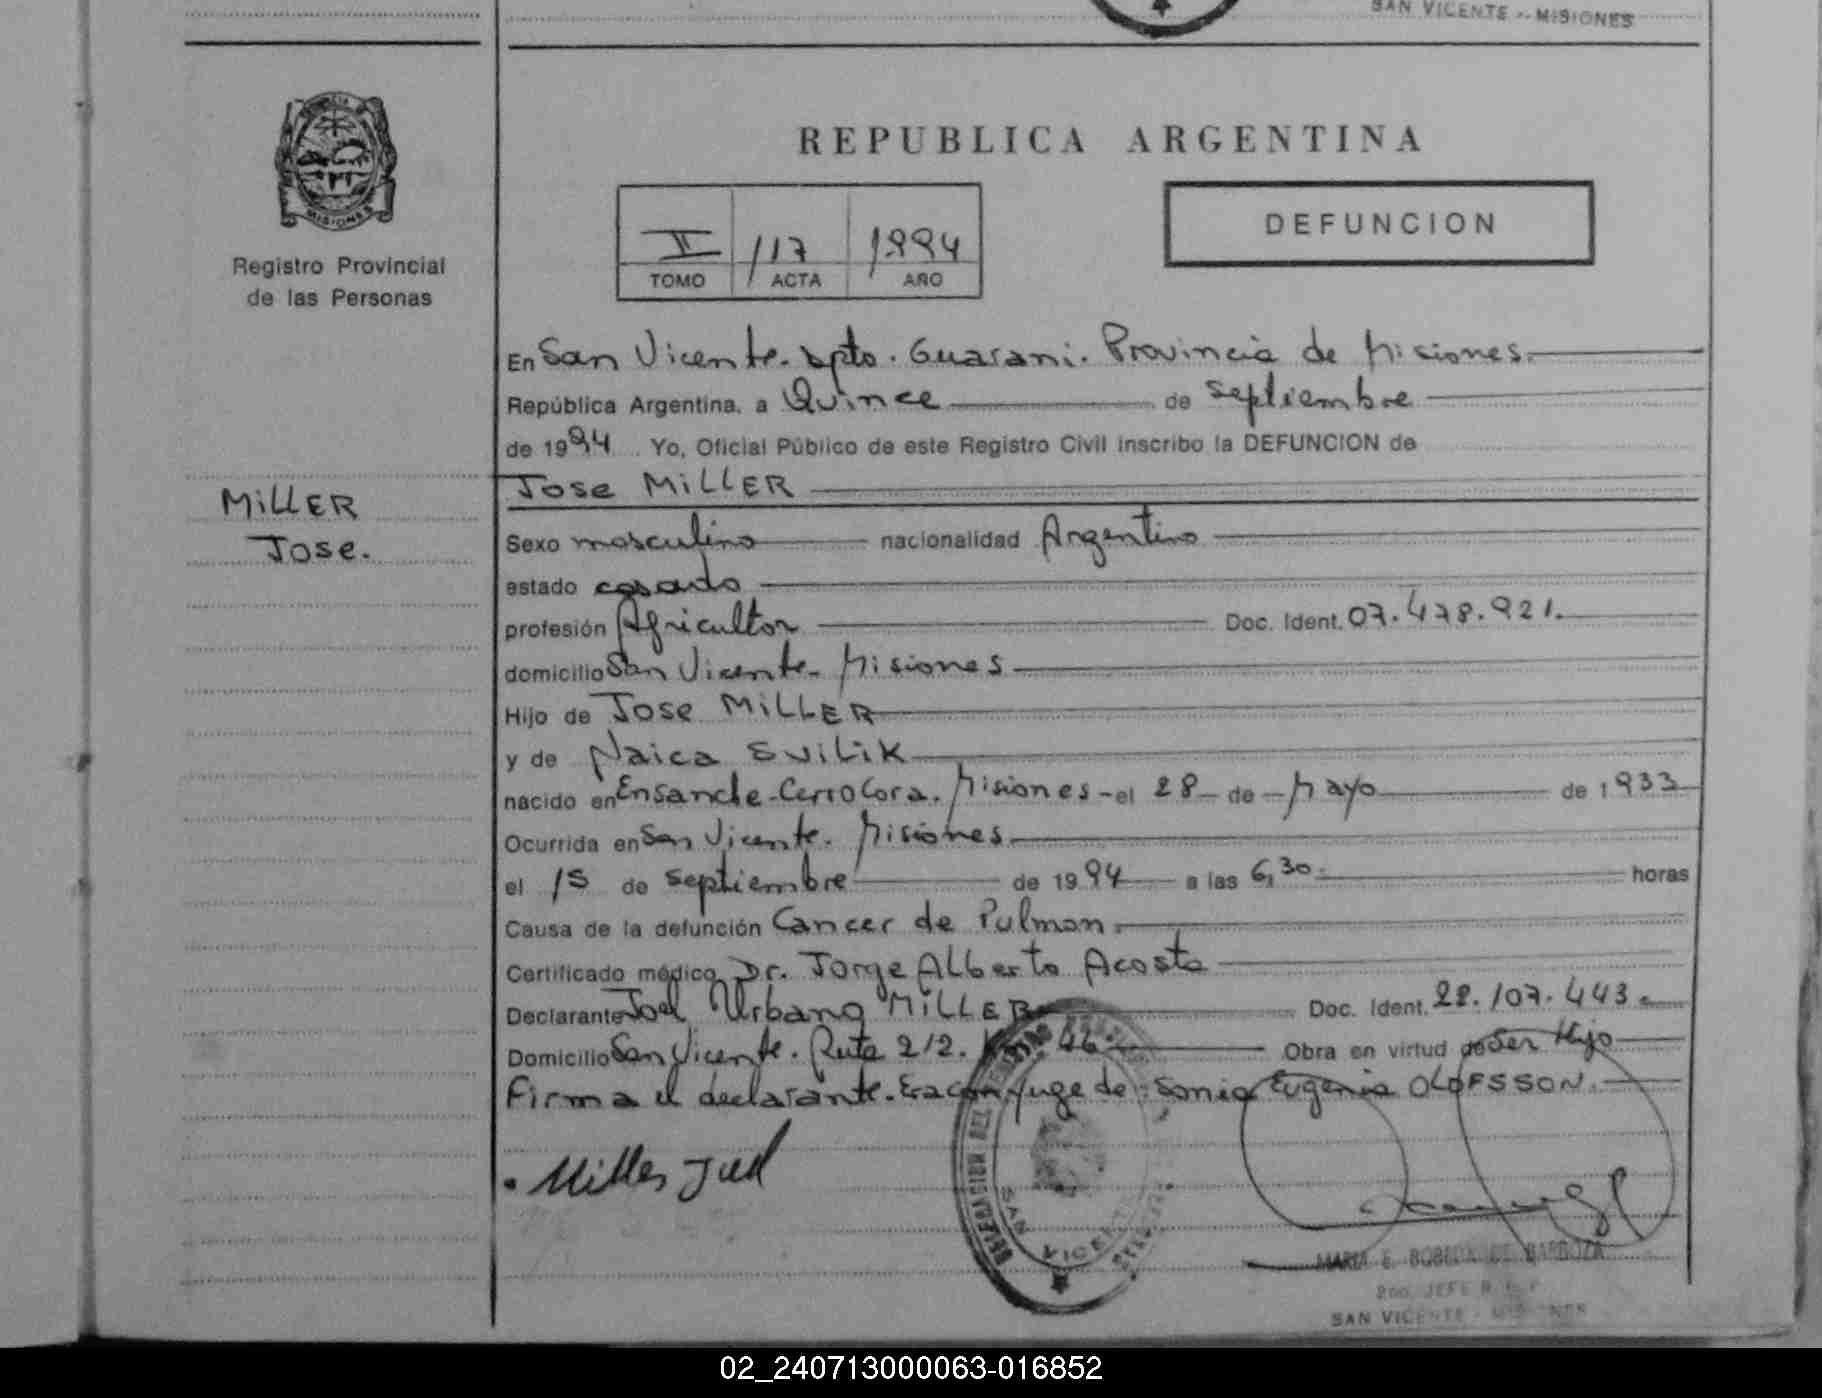 SAN VICENTE - MISIONES
PROVINCIA DE
MISIONES
Registro Provincial
de las Personas
REPUBLICA ARGENTINA
II /17 1994
TOMO ACTA AÑO
DEFUNCION
En San Vicente. Dpto. Guarani. Provincia de Misiones.
República Argentina, a Quince de Septiembre
de 1994. Yo, Oficial Público de este Registro Civil inscribo la DEFUNCION de
Jose MiLLER
MiLLER
Jose.
Sexo masculino nacionalidad Argentino
estado casado
profesión Agricultor Doc. Ident. 07.478.921.
domicilio San Vicente. Misiones
Hijo de Jose MiLLER
y de Naica SviLiK
nacido en Ensanche-Cerro Cora. Misiones - el 28 - de - Mayo de 1933
Ocurrida en San Vicente. Misiones
el 15 de Septiembre de 1994 a las 6,30 horas
Causa de la defunción Cancer de Pulmon.
Certificado médico Dr. Jorge ALberto Acosta
Declarante Joel Urbano MiLLER Doc. Ident. 22.107.443.
Domicilio San Vicente. Ruta 212. 46 Obra en virtud de Ser Hijo
Firma el declarante. Era conyuge de: Sonia Eugenia OLOFSSON.
Miller Joel
DELEGACION DEL
SAN VICENTE
MARIA E. BOBEDA DE BARBOZA
2do. JEFE R. P. P.
SAN VICENTE - MISIONES
02_240713000063-016852